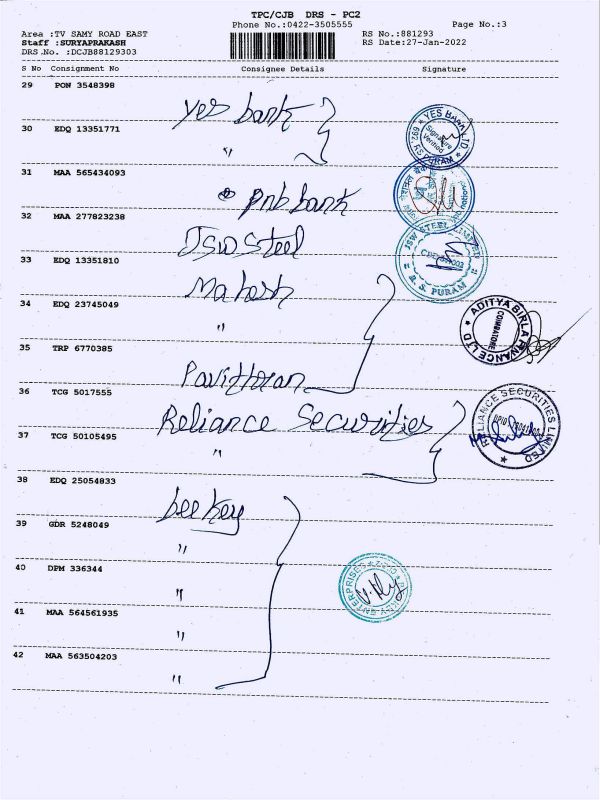 TPC/CJB DRS - PC2
Phone No.:0422-3505555
Page No.:3
Area :TV SAMY ROAD EAST
RS No.:881293
Staff :SURYAPRAKASH
RS Date:27-Jan-2022
DRS No. :DCJB88129303
S No Consignment No Consignee Details Signature
29 PON 3548398
yes bank
YES BANK LTD
Signature Verified
RS PURAM
30 EDQ 13351771
"
31 MAA 565434093
pnb bank
32 MAA 277823238
JSW Steel
JSW STEEL LIMITED
R. S. PURAM
33 EDQ 13351810
Mahesh
34 EDQ 23745049
"
ADITYA BIRLA FINANCE LTD
COIMBATORE
35 TRP 6770385
Pavithran
36 TCG 5017555
Reliance Securities
RELIANCE SECURITIES LIMITED
37 TCG 50105495
"
38 EDQ 25054833
bee key
39 GDR 5248049
"
40 DPM 336344
"
ENTERPRISES
41 MAA 564561935
"
42 MAA 563504203
"